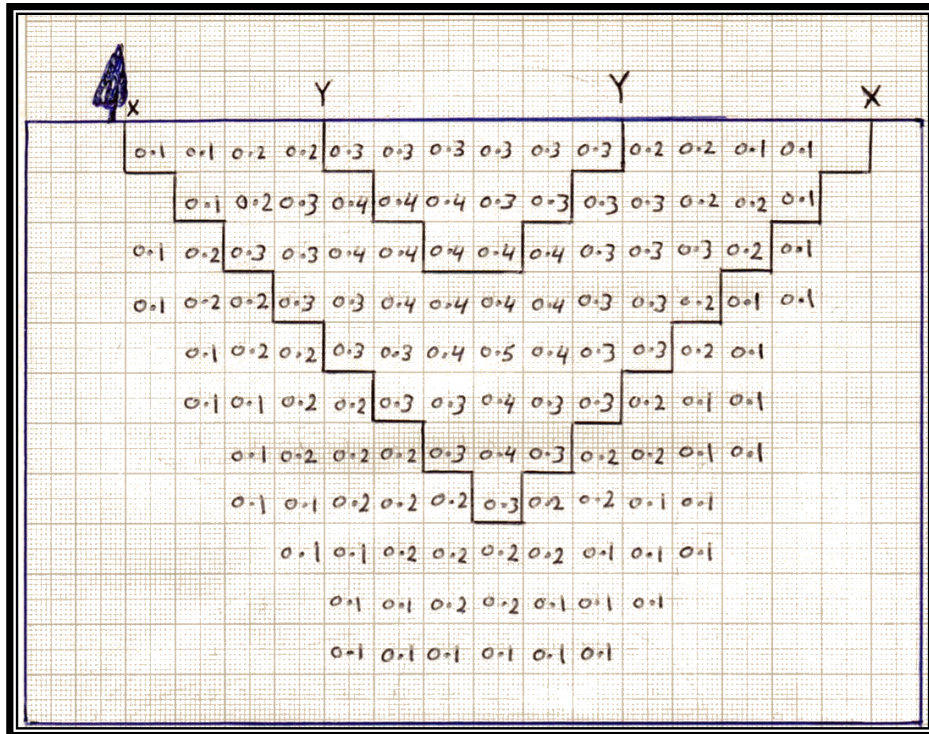 X Y Y X
0.1 0.1 0.2 0.2 0.3 0.3 0.3 0.3 0.3 0.3 0.2 0.2 0.1 0.1
0.1 0.2 0.3 0.4 0.4 0.4 0.3 0.3 0.3 0.3 0.2 0.2 0.1
0.1 0.2 0.3 0.3 0.4 0.4 0.4 0.4 0.4 0.3 0.3 0.3 0.2 0.1
0.1 0.2 0.2 0.3 0.3 0.4 0.4 0.4 0.4 0.3 0.3 0.2 0.1 0.1
0.1 0.2 0.2 0.3 0.3 0.4 0.5 0.4 0.3 0.3 0.2 0.1
0.1 0.1 0.2 0.2 0.3 0.3 0.4 0.3 0.3 0.2 0.1 0.1
0.1 0.2 0.2 0.2 0.3 0.4 0.3 0.2 0.2 0.1 0.1
0.1 0.1 0.2 0.2 0.2 0.3 0.2 0.2 0.1 0.1
0.1 0.1 0.2 0.2 0.2 0.2 0.1 0.1 0.1
0.1 0.1 0.2 0.2 0.1 0.1 0.1
0.1 0.1 0.1 0.1 0.1 0.1